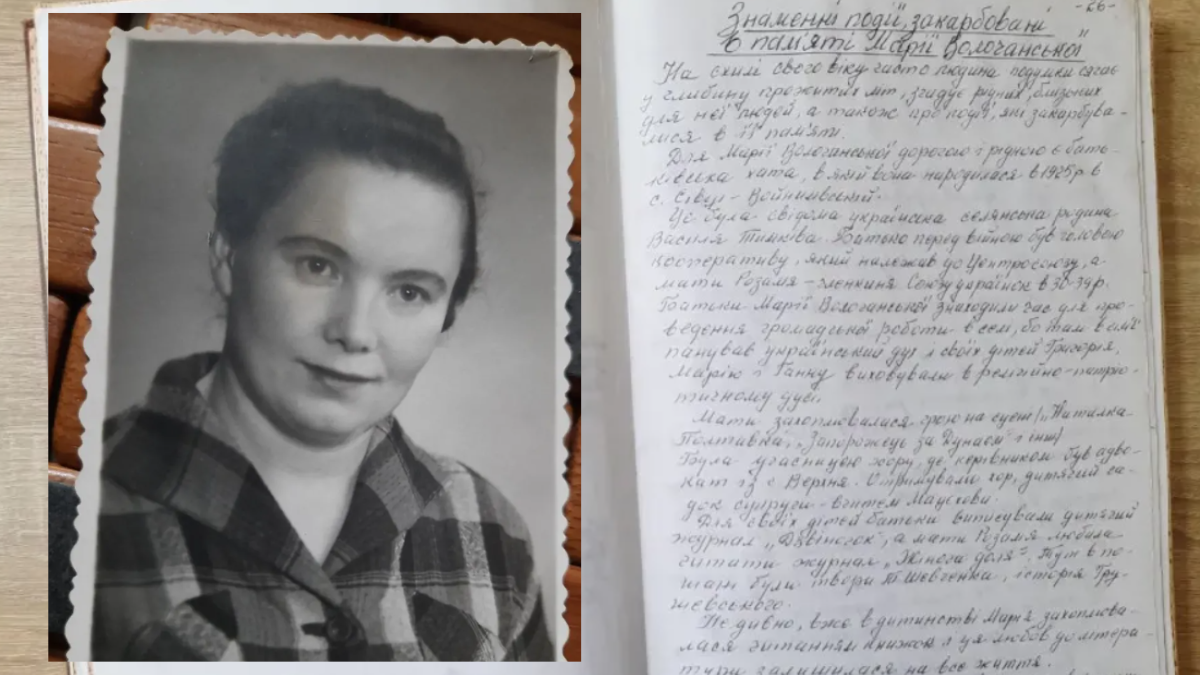 -26-
Знаменні події, закарбовані
в пам'яті Марії Вологанської
На схилі свого віку часто людина думками сягає
у глибину прожитих літ, згадує рідних, близьких
для неї людей, а також про події, які закарбува-
лися в її пам'яті.
Для Марії Вологанської дорогою і рідною є бать-
ківська хата, в якій вона народилася в 1925 р. в
с. Сівці - Войнилівській.
Це була свідома українська селянська родина
Василя Тимківа. Батько перед війною був головою
кооперативу, який належав до Центросоюзу, а
мати Розалія - членкиня Союзу українок в 30-39 р.
Батьки Марії Вологанської знаходили час для про-
ведення громадської роботи в селі, бо там в сім'ї
панував український дух і своїх дітей Григорія,
Марію і Ганну виховували в релігійно-патріо-
тичному дусі.
Мати захоплювалися грою на сцені („Наталка-
Полтавка", „Запорожець за Дунаєм" і інші)
Була учасницею хору, де керівником був адво-
кат із с. Верхня. Отримували хор, дитячий са-
док
Для своїх дітей батьки виписували дитячий
журнал „Дзвіночок", а мати Розалія любила
читати журнал „Жіноча доля". Тут в по-
шані були твори Т. Шевченка, історія Гру-
шевського.
Не дивно, вже в дитинстві Марія захоплюва-
лася читанням книжок і ця любов до літера-
тури залишилася на все життя.